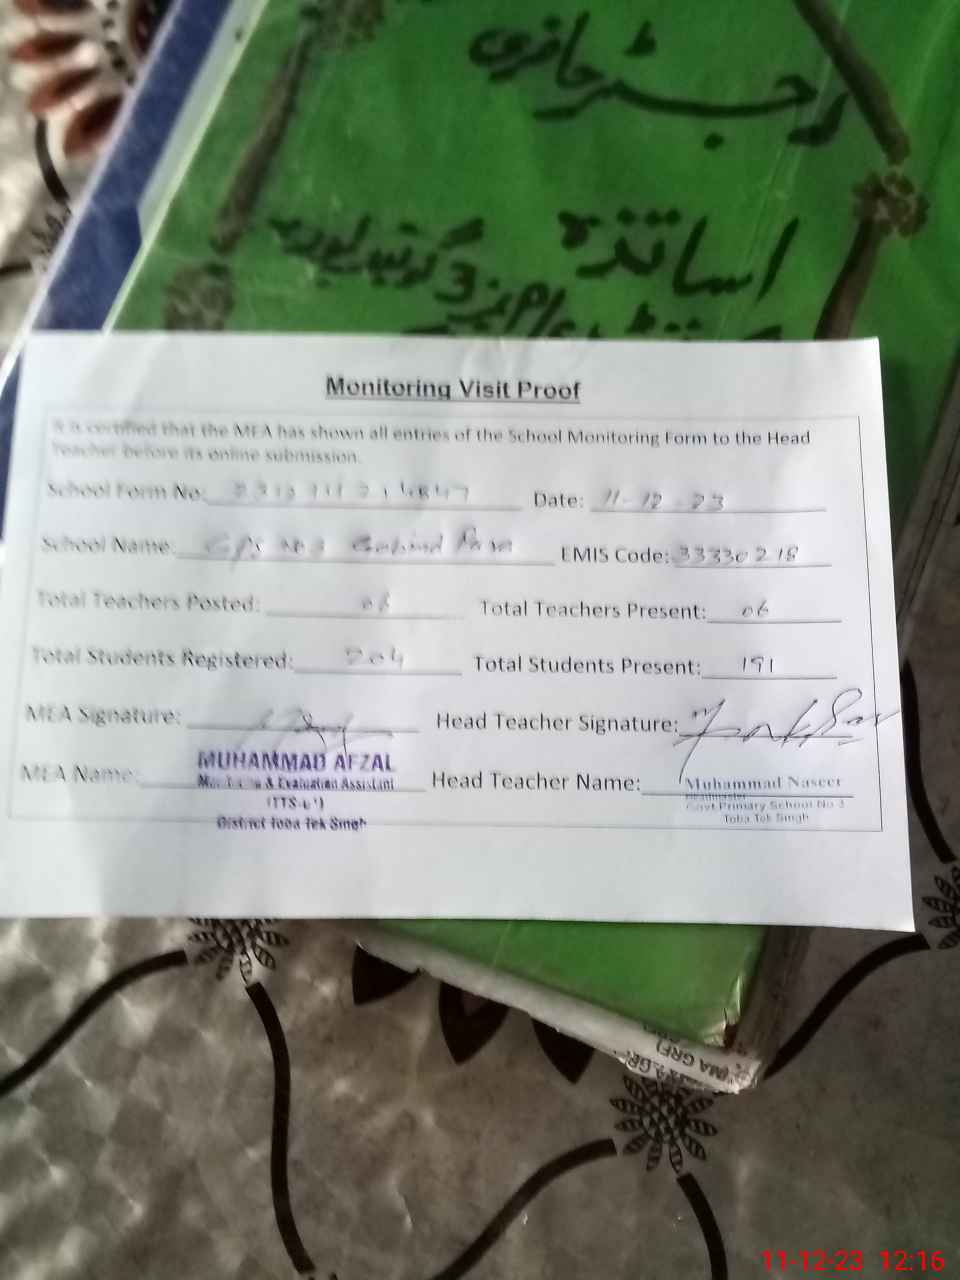 رجسٹر حاضری
اساتذہ
Monitoring Visit Proof
It is certified that the MEA has shown all entries of the School Monitoring Form to the Head
Teacher before its online submission.
School Form No: Date: 11-12-23
School Name: GPS No 3 Gobind Pura EMIS Code: 33330218
Total Teachers Posted: 06 Total Teachers Present: 06
Total Students Registered: 204 Total Students Present: 191
MEA Signature: Head Teacher Signature:
MUHAMMAD AFZAL
MEA Name: Monitoring & Evaluation Assistant Head Teacher Name: Muhammad Naseer
Headmaster
District Toba Tek Singh Govt Primary School No 3
Toba Tek Singh
11-12-23 12:16